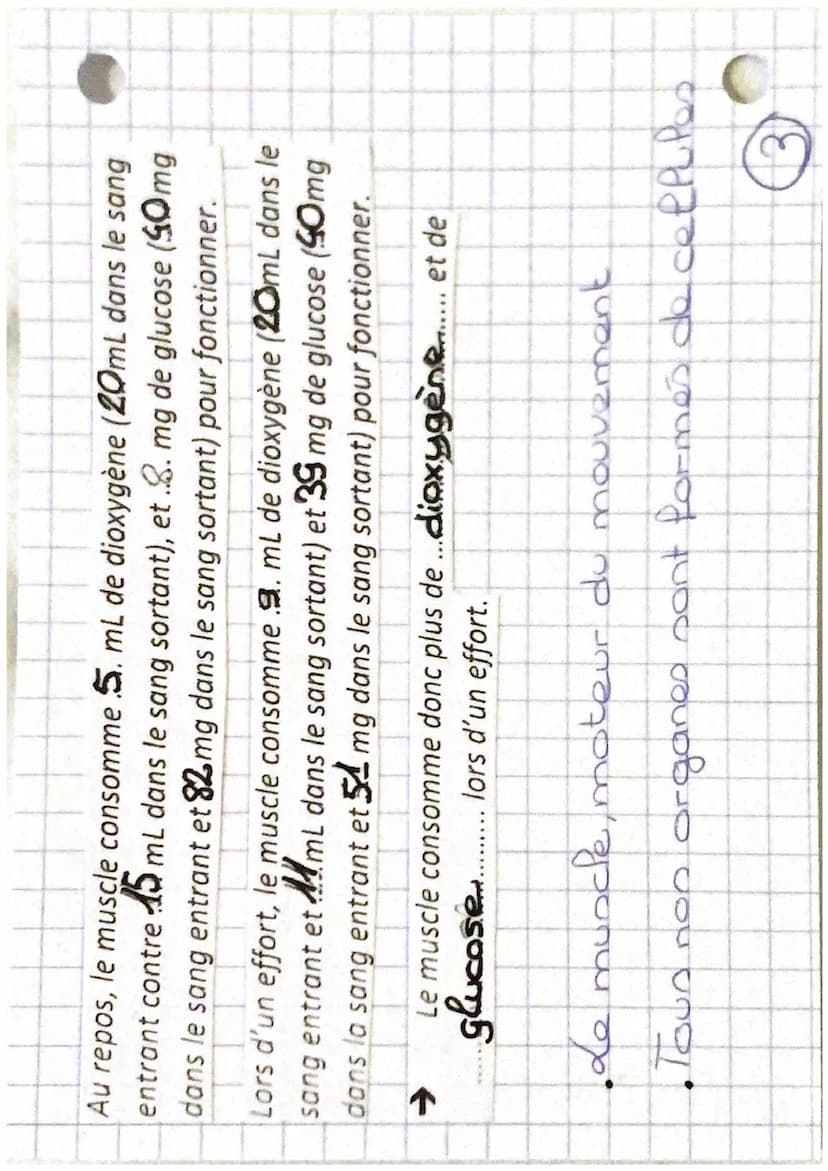 Au repos, le muscle consomme .5. mL de dioxygène (20mL dans le sang
entrant contre 15 mL dans le sang sortant), et .8.. mg de glucose (90mg
dans le sang entrant et 82 mg dans le sang sortant) pour fonctionner.
Lors d'un effort, le muscle consomme .9. mL de dioxygène (20mL dans le
sang entrant et 11 mL dans le sang sortant) et 39 mg de glucose (90mg
dans la sang entrant et 51 mg dans le sang sortant) pour fonctionner.
→ Le muscle consomme donc plus de ...dioxygène...... et de
......glucose........... lors d'un effort.
• Le muscle, moteur du mouvement
• Tous nos organes sont formés de cellules
3